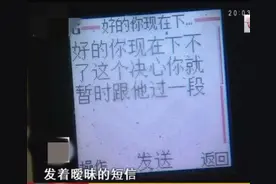 20:03
好的你现在下...
好的你现在下不
了这个决心你就
暂时跟他过一段
发着暧昧的短信
操作 发送 返回